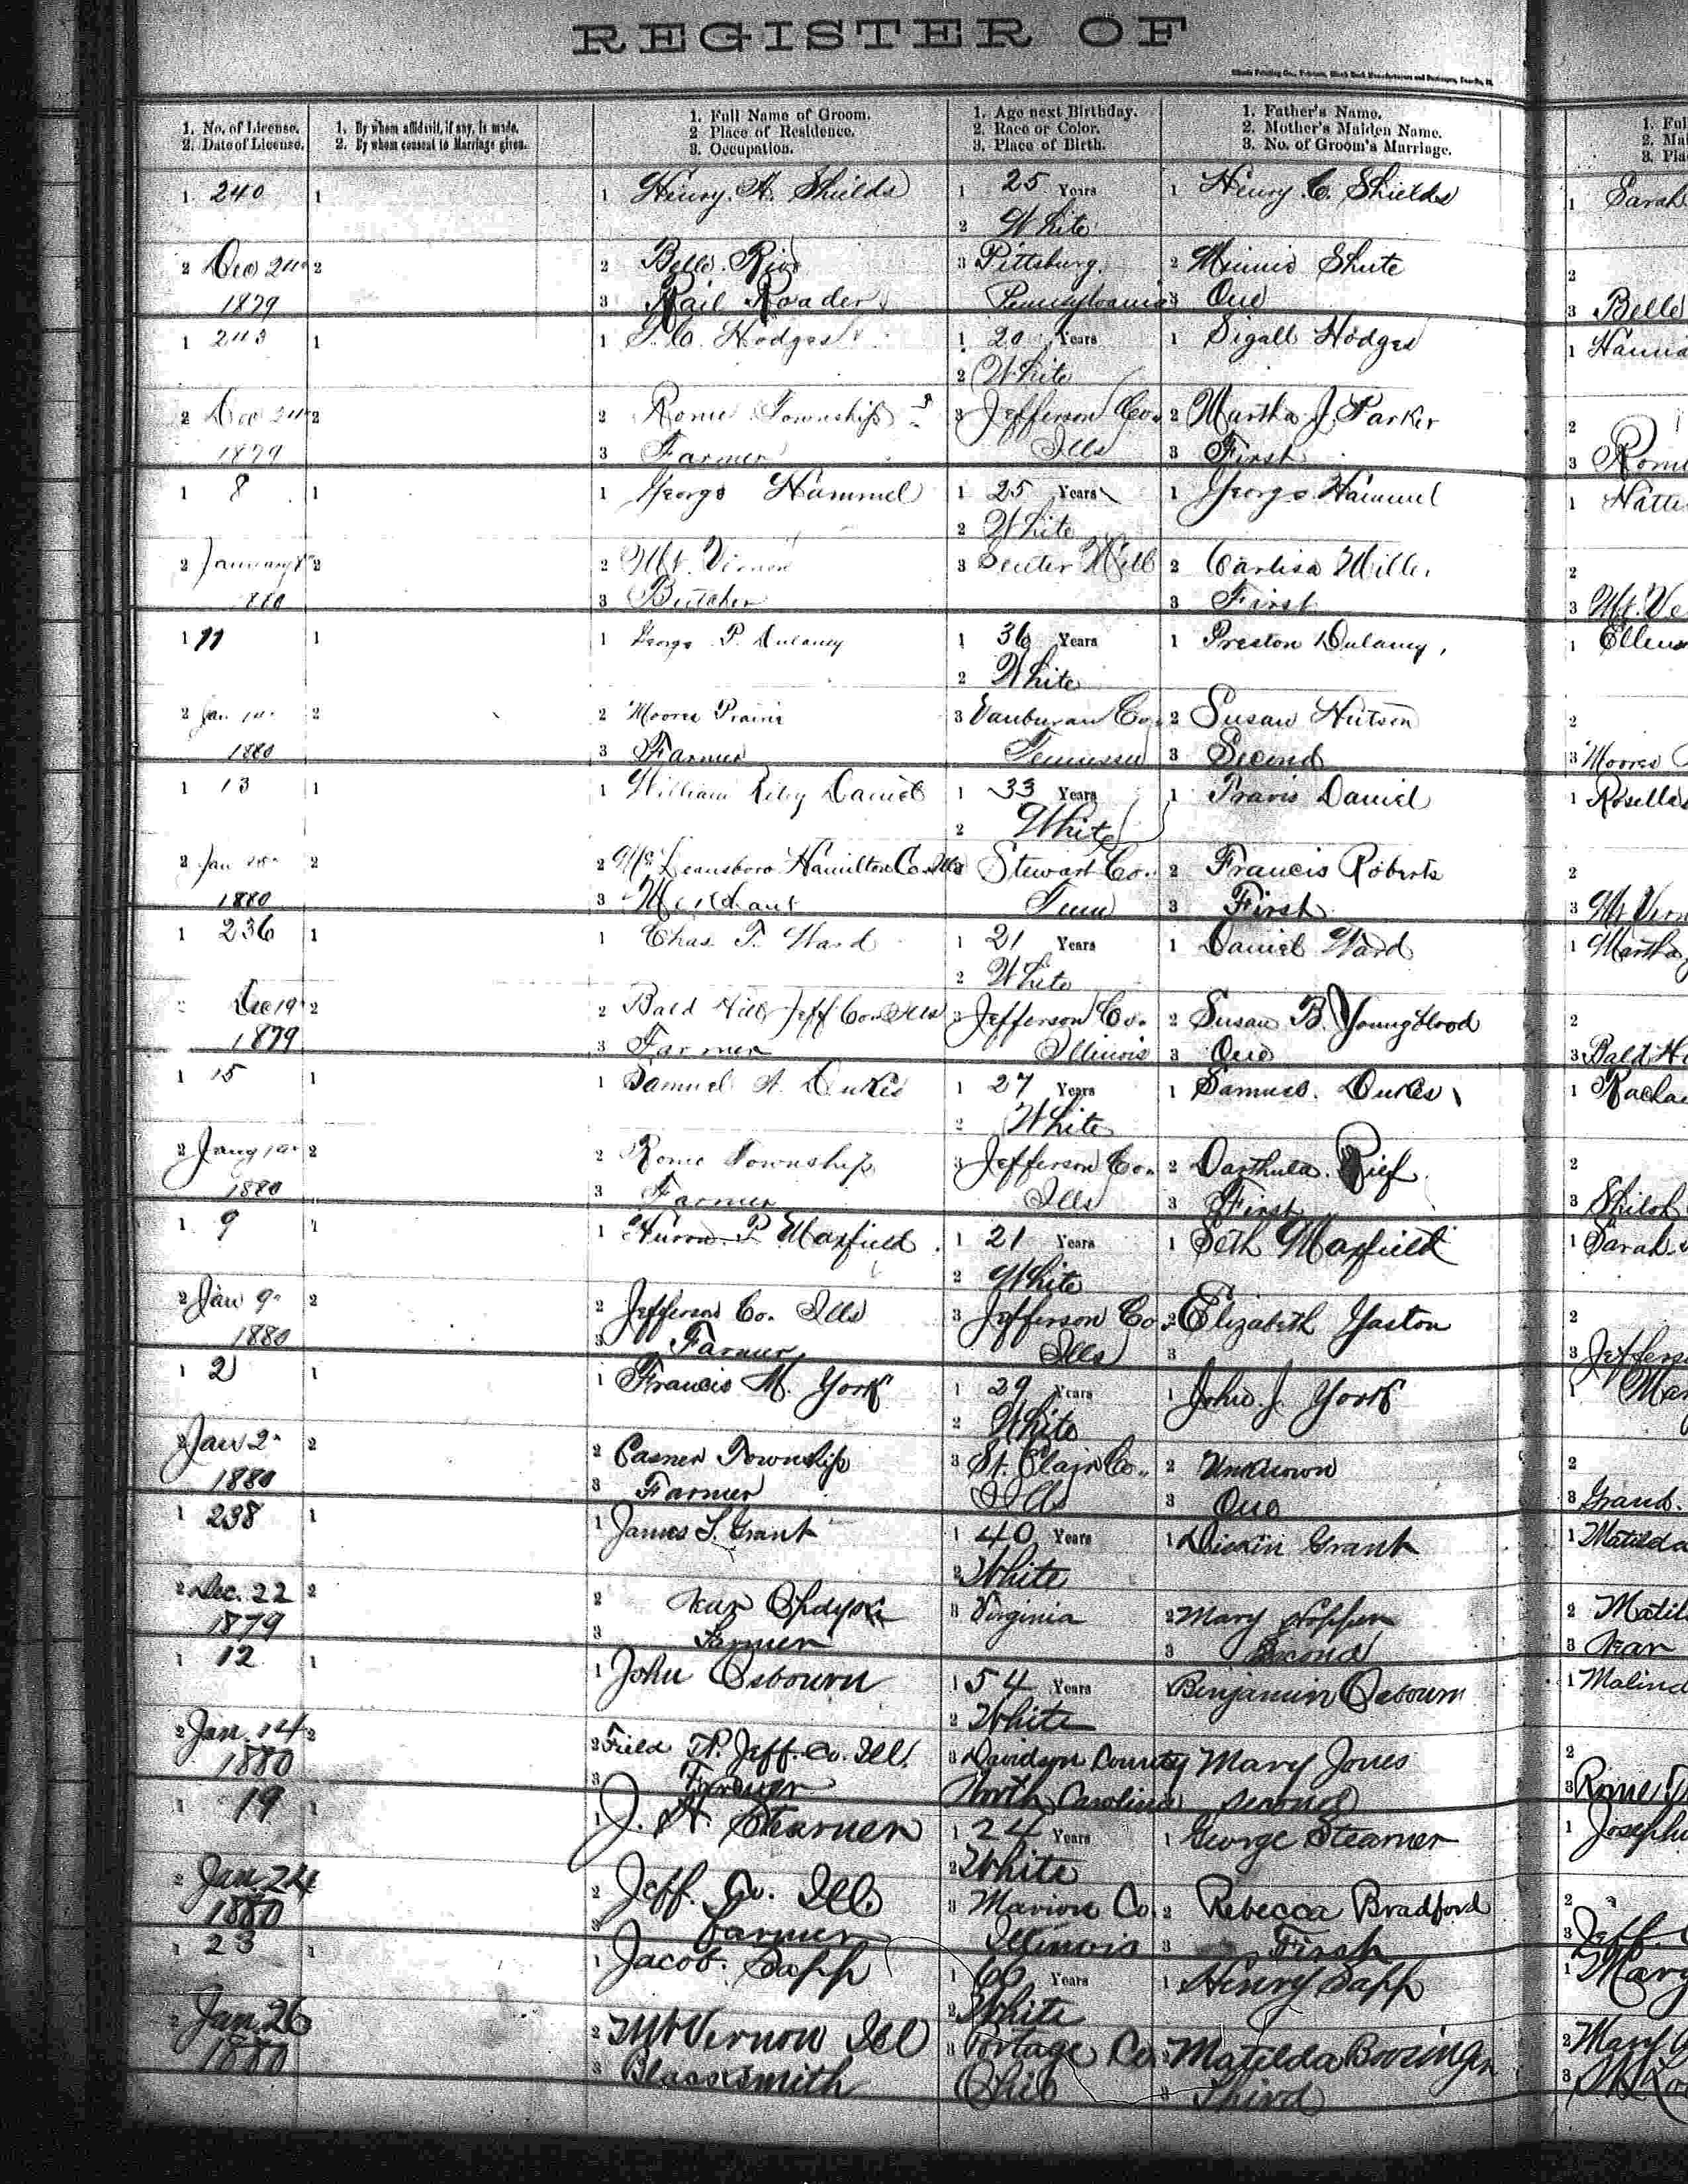 REGISTER OF
1. No. of License.
2. Date of License.
1. By whom affidavit, if any, is made.
2. By whom consent to Marriage given.
1. Full Name of Groom.
2. Place of Residence.
3. Occupation.
1. Age next Birthday.
2. Race or Color.
3. Place of Birth.
1. Father's Name.
2. Mother's Maiden Name.
3. No. of Groom's Marriage.
1 240 1 1 Henry. A. Shields 1 25 Years 1 Henry. C. Shields 1 Sarah
2 White
2 Dec 24 2 2 Belle. Rive 3 Pittsburg. 2 Minnie Shute 2
1879 3 Rail Roader Pennsylvania 3 One 3 Belle
1 243 1 1 Hodges 1 20 Years 1 Sigall Hodges 1 Hanna
2 White
2 Dec 24 2 2 Rome Township 3 Jefferson Co. 2 Martha J. Parker 2
1879 3 Farmer Ills 3 First 3 Rome
1 8 1 1 George Hammel 1 25 Years 1 George Hammel 1 Hattie
2 White
2 January 8 2 2 Mt. Vernon 3 Senter Hill 2 Carlisa Miller 2
1880 3 Butcher 3 First 3 Mt. Ve
1 11 1 1 George P. Dulaney 1 36 Years 1 Preston Dulaney, 1 Ellen
2 White
2 Jan 2 2 Moores Prairie 3 Vanburan Co. 2 Susan Hutson 2
1880 3 Farmer Tennessee 3 Second 3 Moores
1 13 1 1 William Riley Daniel 1 33 Years 1 Travis Daniel 1 Rosella
2 White
2 Jan 2 2 McLeansboro Hamilton Co Ills Stewart Co. 2 Francis Roberts 2
1880 3 Merchant Tenn 3 First 3 Mt Vern
1 236 1 1 Chas. T. Ward 1 21 Years 1 Daniel Ward 1 Martha
2 White
Dec 19 2 2 Bald Hill Jeff Co. Ills 3 Jefferson Co. 2 Susan B. Youngblood 2
1879 3 Farmer Illinois 3 One 3 Bald Hi
1 15 1 1 Samuel A. Dukes 1 27 Years 1 Samuel. Dukes 1 Rachae
2 White
2 Jany 2 2 Rome Township 3 Jefferson Co. 2 Darthula. 2
1880 3 Farmer Ills 3 First 3 Shiloh
1 9 1 1 P. Maxfield 1 21 Years 1 Seth Maxfield 1 Sarah
2 White
2 Jan 9 2 2 Jefferson Co. Ills 3 Jefferson Co. 2 Elizabeth Gaston 2
1880 3 Farmer Ills 3 3 Jefferso
1 2 1 1 Francis M. York 1 29 Years 1 John. J. York 1 Mar
2 White
2 Jan 2 2 2 Casner Township 3 St. Clair Co., 2 Unknown 2
1880 3 Farmer Ills 3 One 3 Grand.
1 238 1 1 James S. Grant 1 40 Years 1 Grant 1 Matilda
2 White
2 Dec. 22 2 2 near Opdyke 3 Virginia 2 Mary Hopper 2 Matil
1879 3 Farmer 3 Second 3 near
1 12 1 1 John Osbourn 1 54 Years Benjamin Osbourn 1 Malind
2 White
2 Jan. 14 2 2 Field Tp. Jeff. Co. Ill. 3 Davidson County Mary Jones 2
1880 3 Farmer North Carolina second 3 Rome
1 19 1 1 J. H. Stearner 1 24 Years 1 George Stearner 1 Josephi
2 White
2 Jan. 24 2 Jeff. Co. Ill. 3 Marion Co. 2 Rebecca Bradford 2
1880 3 Farmer Illinois 3 First 3 Jeff.
1 23 1 1 Jacob. Sapp 1 60 Years 1 Henry Sapp 1 Mary
2 White
2 Jan 26 2 Mt Vernon Ill 3 Portage Co. Matilda Boosinger 2 Mary
1880 3 Blacksmith Ohio 3 Third 3